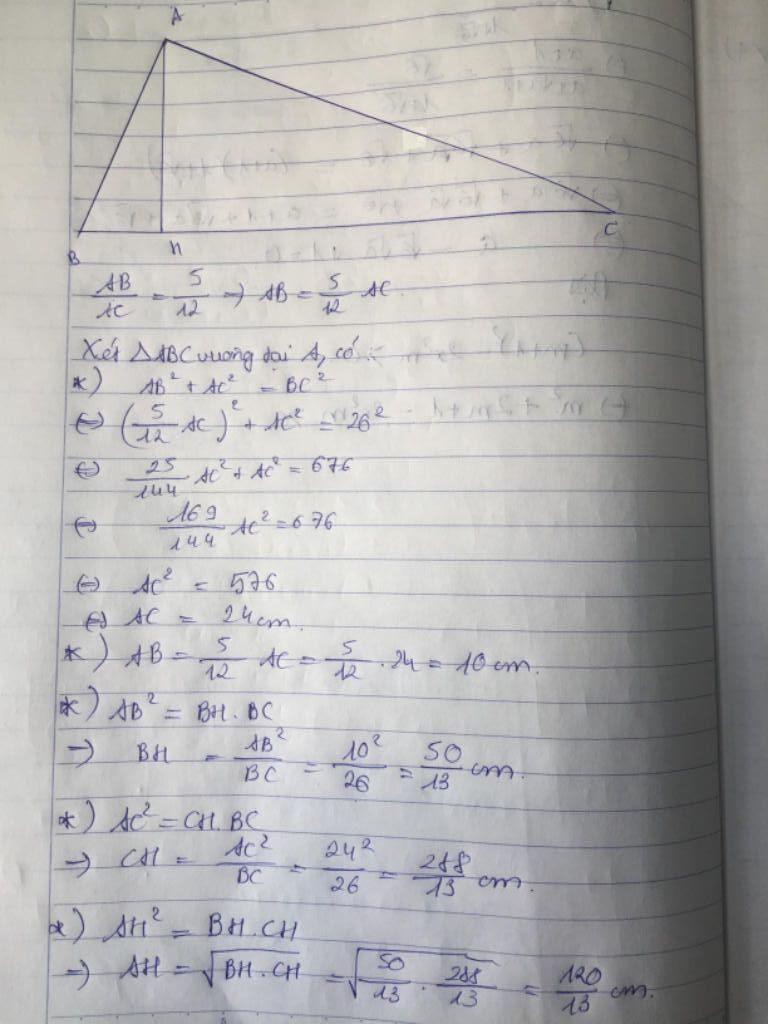 A
B
H
C
AB/AC = 5/12 → AB = 5/12 AC.
Xét △ABC vuông tại A, có
*) AB² + AC² = BC²
⇔ (5/12 AC)² + AC² = 26²
⇔ 25/144 AC² + AC² = 676
⇔ 169/144 AC² = 676
⇔ AC² = 576
⇔ AC = 24cm.
*) AB = 5/12 AC = 5/12 . 24 = 10 cm.
*) AB² = BH.BC
→ BH = AB²/BC = 10²/26 = 50/13 cm.
*) AC² = CH.BC
→ CH = AC²/BC = 24²/26 = 288/13 cm.
*) AH² = BH.CH
→ AH = √(BH.CH) = √(50/13 . 288/13) = 120/13 cm.